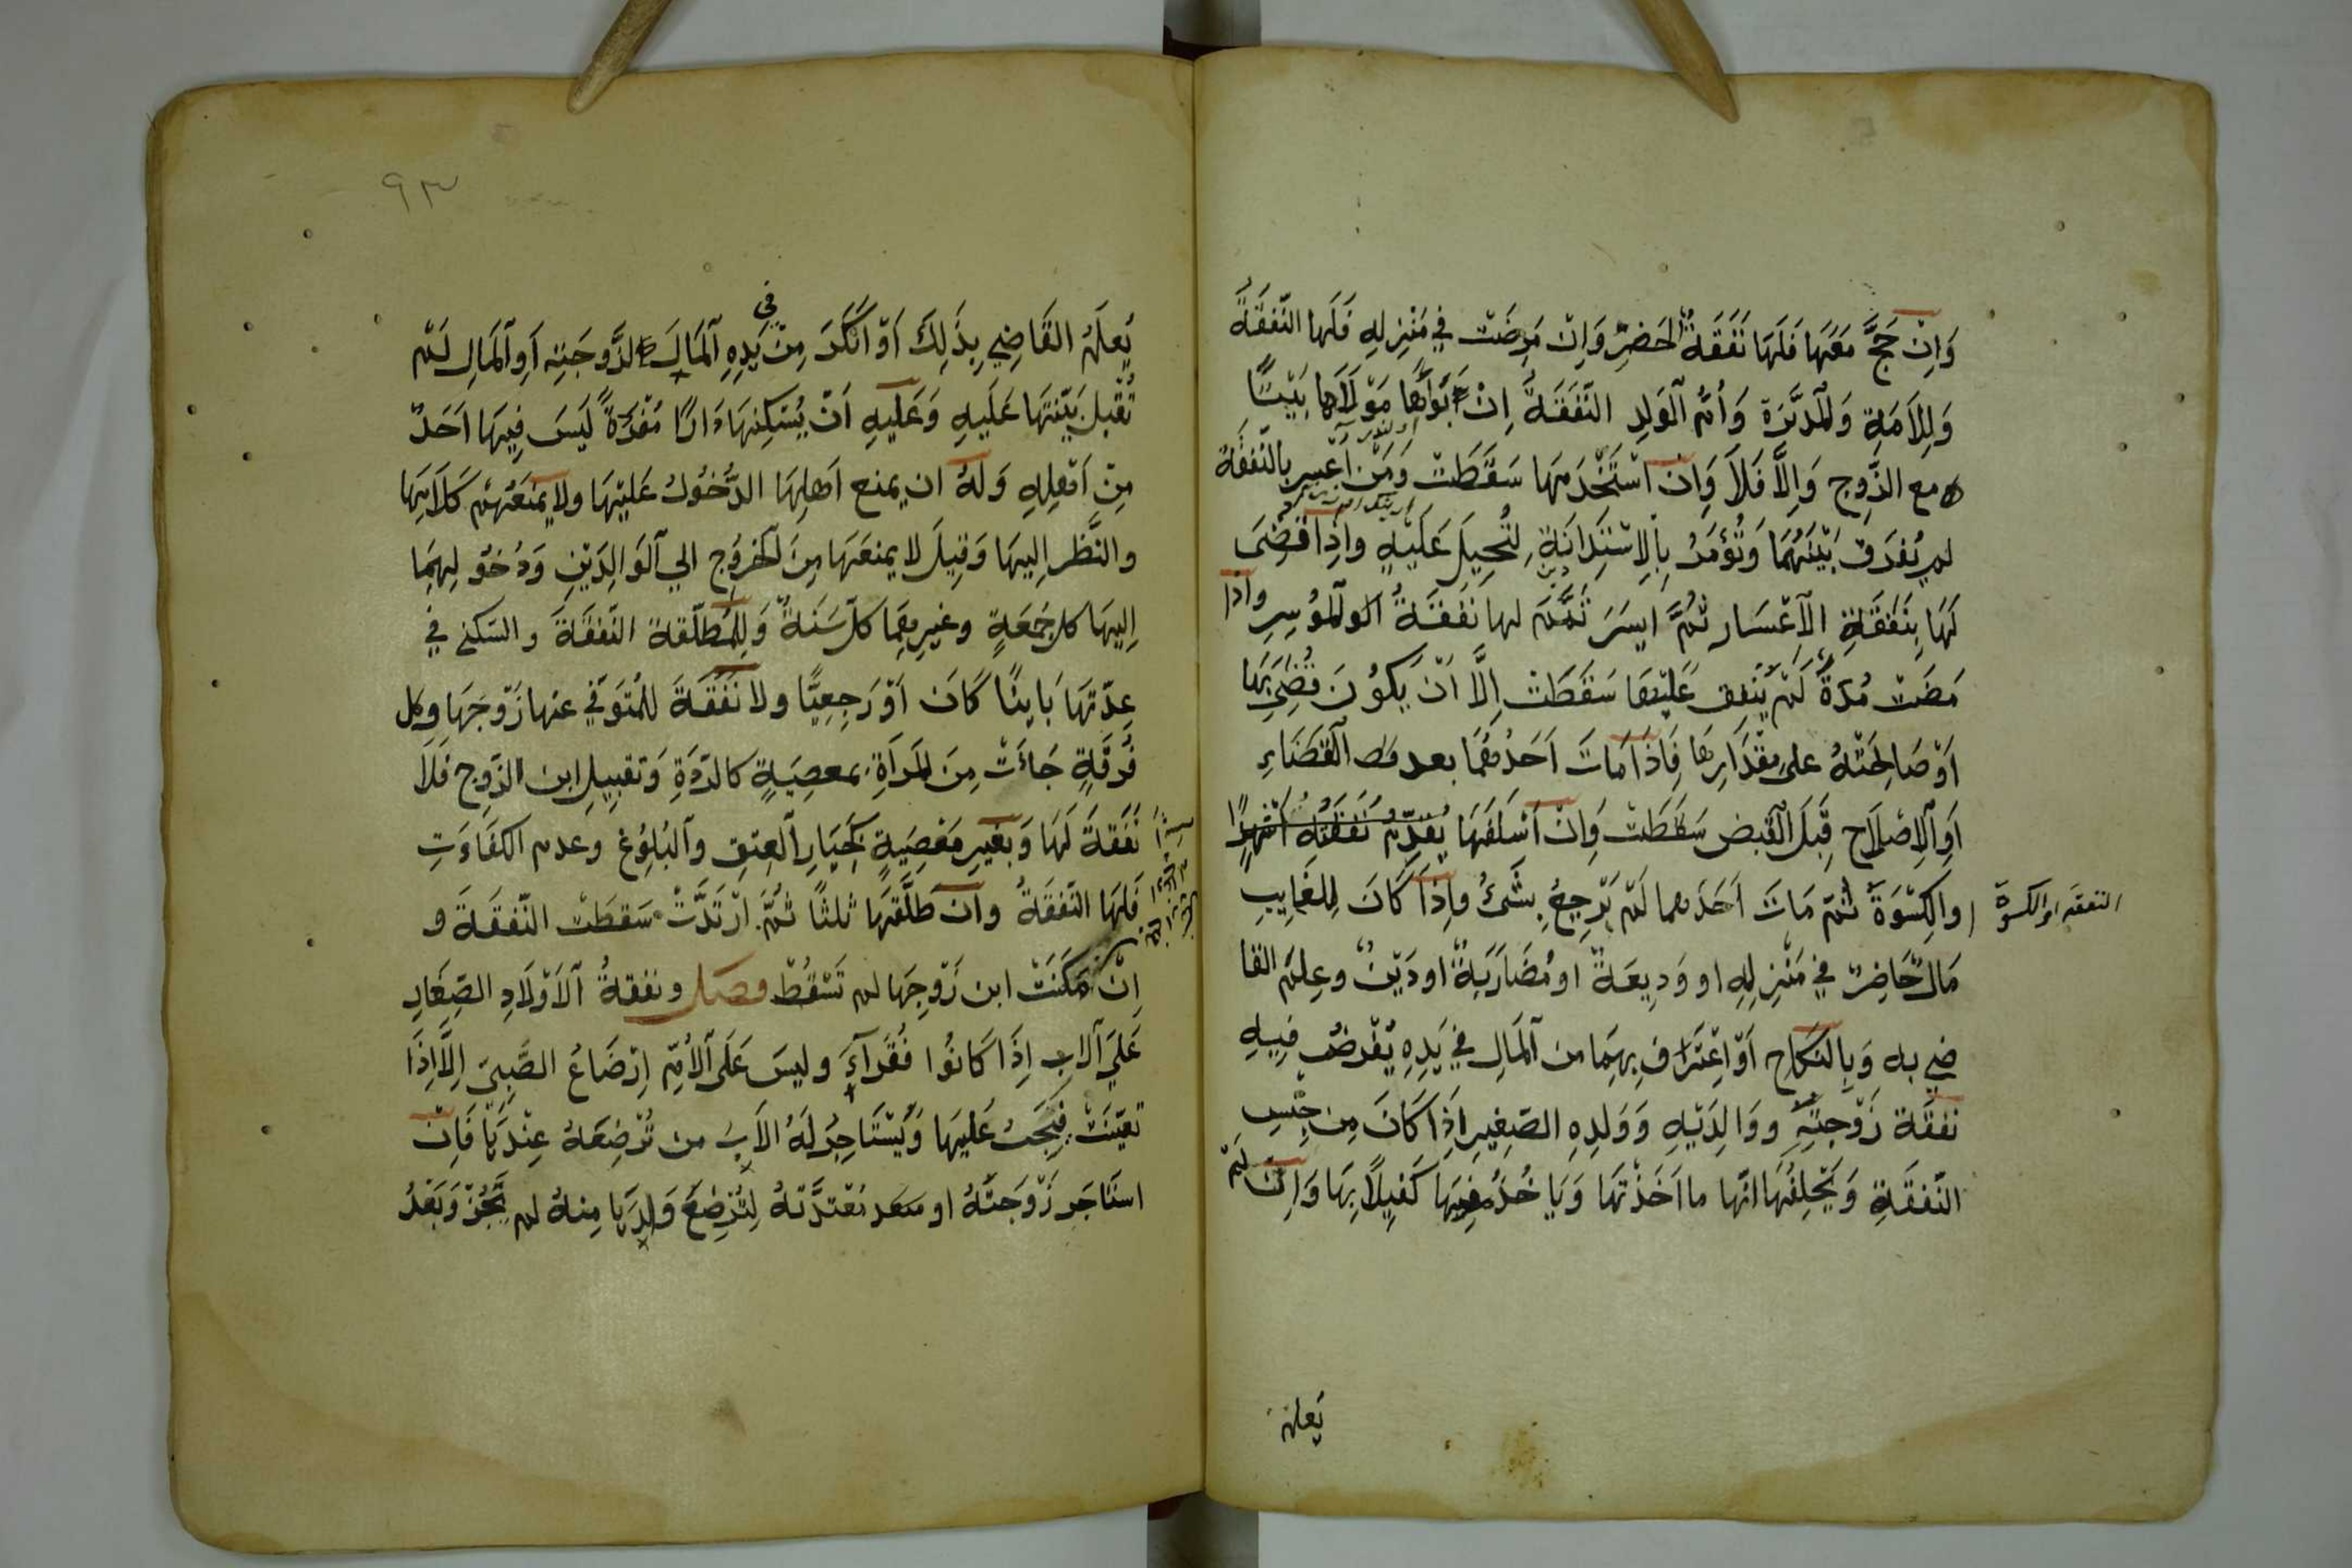 وَاِنْ حَجَّ مَعَهَا فَلَهَا نَفَقَةُ الحَضَرِ وَاِنْ مَرِضَتْ في مَنْزِلِهِ فَلَها النّفَقَةُ
وَلِلاَمَةِ وَالمُدَبَّرَةِ وَاُمِّ الوَلدِ النَّفَقَةُ اِنْ بَوَّأَهَا مَوْلاَهَا بَيْتًا
مع الزَّوج وَاِلَّا فَلَا وَاِن اسْتَخْدَمَهَا سَقَطَتْ وَمَنْ اعسِر بِالنَّفقَةِ
لم يُفرَق بَيْنَهُمَا وَتُؤمَرُ بِالاِسْتِدَانَةِ لِتُحِيلَ عَلَيْهِ واِذَا قُضِىَ
لَهَا بِنَفَقَةِ الاِعْسَار ثُمَّ ايسَرَ تَمَّمَ لها نَفَقَةُ المُوسِرِ واذا
مَضَت مُدّةٌ لَمْ يُنْفِق عَلَيْهَا سَقَطَتْ اِلَّا اَنْ يَكُوُنَ قُضِيَ بَهَا
اَوْ صَالَحَتْهُ على مِقْدَارِهَا فَاِذَا مَاتَ اَحَدُهُمَا بعد القَضَاءِ
اَوِ الاِصْلَاح قَبْلَ القَبض سَقَطَتْ وَاِنْ اَسْلَفَهَا نَفَقَةَ اَشْهُرٍ
والكِسْوَةَ ثُمّ مَاتَ اَحَدهما لَمْ يَرْجِعْ بِشَىْءٍ واِذَا كَانَ لِلغَايِبِ
النفقه او الكسوة
مَالٌ حَاضِرٌ في مَنْزِلِهِ او وَدِيعَةٌ او مُضَارَبَةٌ او دَيْنٌ وعِلمَ القا
ضي به وَبِالنّكَاح اَوْ اِعْتَرَافَ بِهِمَا من المَالِ في يَدِهِ يُفْرضُ فِيهِ
نفَقَة زَوْجتِهِ ووَالِدَيْهِ وَوَلَدِهِ الصَّغِيرِ اِذَا كَانَ مِن جِنْسِ
النّفقَةِ وَيُحْلِفُهَا انّها ما اَخَذَتْهَا وَيَاخُذُ مِنهَا كَفِيلًا بِهَا وَاِنْ لَمْ
يَعلَمْ
٩٣
يَعلَمْ القَاضِي بِذَلِكَ اَوْ اَنْكَرَ مِنْ في يَدِهِ المَالَ الزَّوجَتِهِ اَوِ المَالِ لَمْ
تُقْبل بَيّنَتهَا عَلَيهِ وَعَلَيهِ اَنْ يُسْكِنهَا دَارًا مُفْرَدَةً لَيسَ فِيهَا اَحَدٌ
مِنْ اَهلِهِ وَلَهُ ان يمنع اَهلهَا الدُّخُولَ عَليْهَا ولا يَمْنَعُهُمْ كَلَامَهَا
والنَّظر اِليهَا وَقِيلَ لا يمنعَهَا مِنَ الخروُجِ الي الوَالِدَيْنِ وَدُخوُلِهِمَا
اِليهَا كل جُمَعَةٍ وغيرهِمَا كلَّ سَنَةٌ وَلِلمُطَلّقةِ النَّفقَةَ والسّكنى في
عِدّتِهَا بَاينًا كَانَ اَوْ رَجِعِيًّا ولا نَفَقَةَ للمُتَوَفّي عنها زَوْجَهَا وكل
فُرقَةٍ جَاءَتْ مِنَ المَراَةِ بِمعصِيَةٍ كالرّدَّةِ وَتقبِيلِ ابن الزَّوج فَلَا
نَفقةَ لَهَا وَبغَيرِ مَعْصِيَةٍ كَخِيَارِ العِتِق والبُلوُغ وعدم الكَفَاءَتِ
فَلهَا النَّفقَةُ وان طَلَّقهَا ثلثًا ثُمَّ ارْتَدَّتْ سَقطَتْ النّفقَةَ و
اِنْ مَكَّنَتْ ابن زَوْجِهَا لم تَسْقُطْ فصل ونفقةُ الاَوْلَادِ الصِّغَارِ
عَلَي الابِ اِذَا كَانوُا فُقَراءَ وليسَ عَلَى الاُمِّ اِرْضَاعُ الصَّبِيّ اِلَّا اِذَا
تعيّنَتْ فيَجبُ عَليهَا وَيَسْتَاجِرُ لَهُ الاَبِ من تُرْضِعَهُ عِنْدَهَا فَاِنْ
استَاجَر زَوْجَتهُ او مُعْتدّتهُ لِتُرْضِعَ وَلَدَهَا مِنهُ لم يَجُزْ وَبَعْدُ